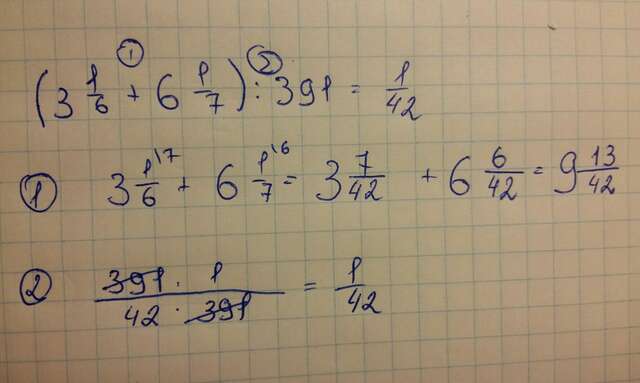 ① ②
(3 1/6 + 6 1/7) : 391 = 1/42
① 3 1/6 \7 + 6 1/7 \6 = 3 7/42 + 6 6/42 = 9 13/42
② 391 · 1 / 42 · 391 = 1/42